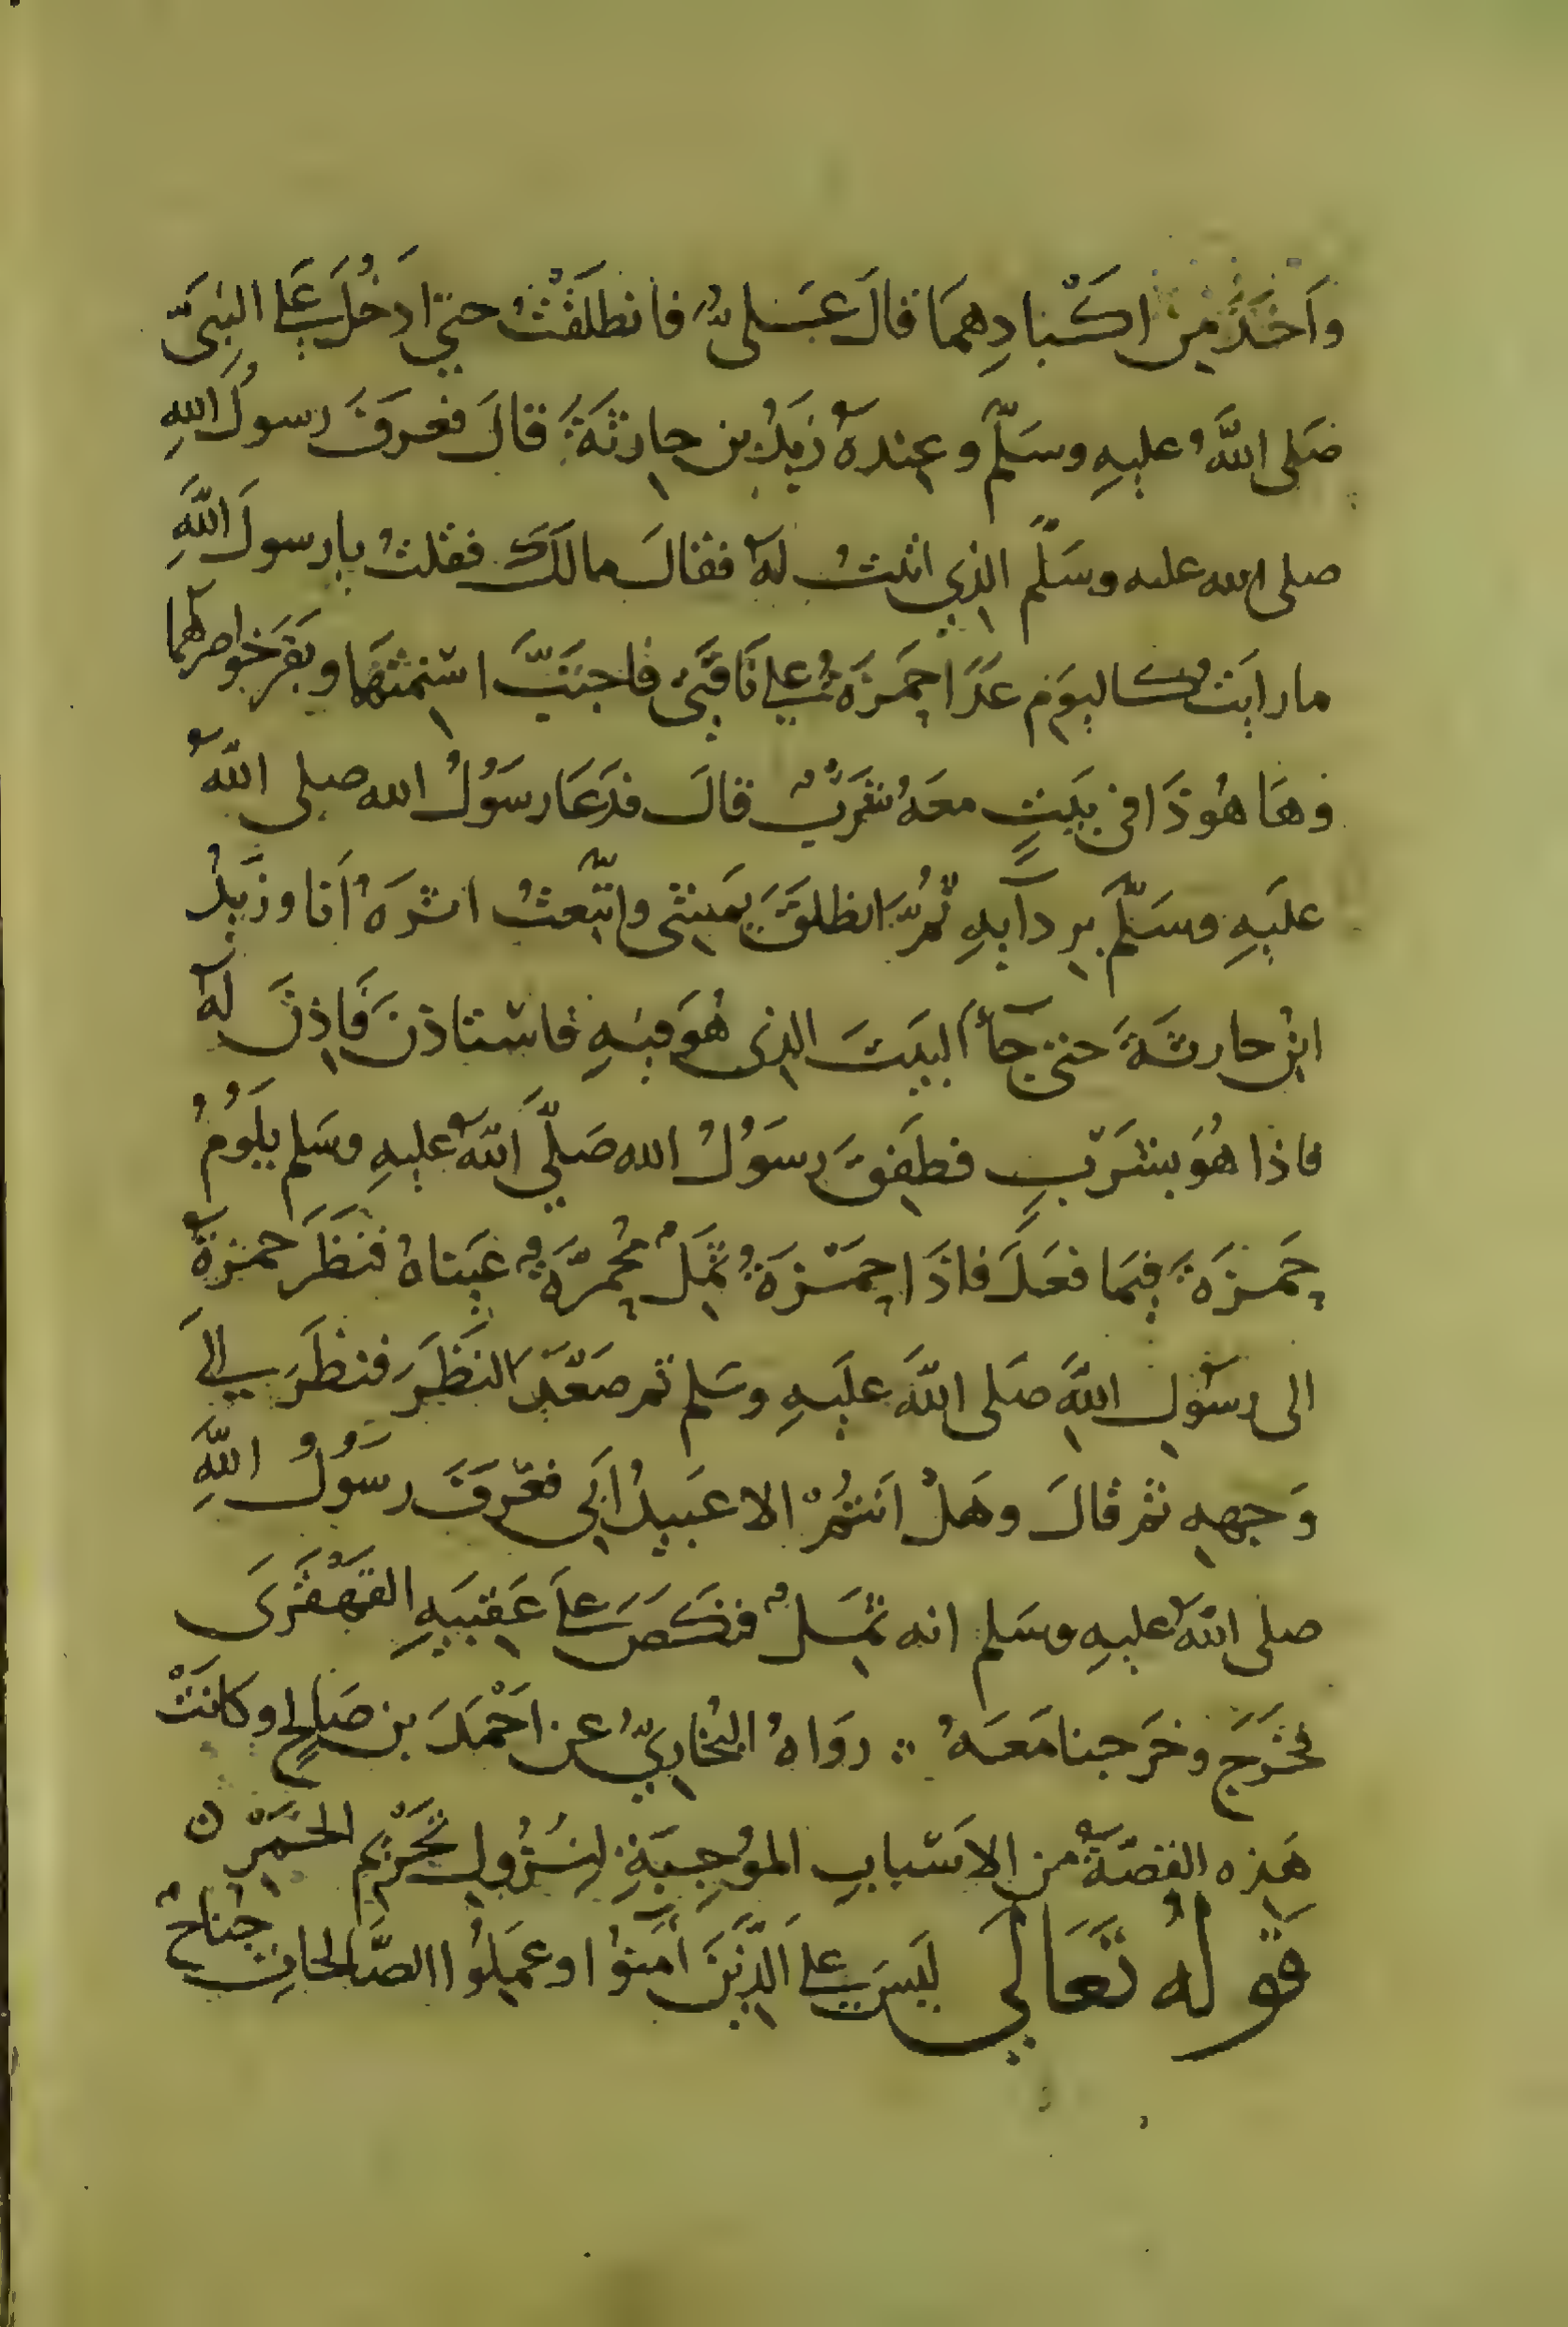 وَاَخَذَ مِنْ اكْبادِهِمَا قالَ عَلىٌّ فانطلَقْتُ حتى ادخُلَ على النبىّ
صَلى اللهُ عليهِ وسَلّم وعِندهُ زَيدُ بن حارثَةَ قالَ فعرَفَ رسولُ اللهِ
صلى الله عليه وسَلّم الذي اتيتُ لهُ فقالَ مالَكَ فقلتُ يارسولَ اللهِ
مارايتُ كاليوَم عَدَا حَمزَةُ على نَاقتَىَّ فاجتَبَّ اسْنِمتَهَا وبَقرَ خواصرَهُما
وهَا هُوذَا فى بَيتٍ معَهُ شَرْبٌ قالَ فدَعَا رسَوُلُ الله صلى اللهُ
علَيهِ وسَلّم بِردآيهِ ثُمَّ انطلقَ يَمشِى واتّبعتُ اثرَهُ اَنا وزَيدُ
ابن حارثةَ حتى جآءَ البيَتَ الذى هُوَ فيهِ فاسْتاذنَ فَاِذِنَ لهُ
فاذا هُوَ بشَرْبٍ فطفِقَ رسَوُلُ الله صَلّي اللهُ عليهِ وسَلم يلَوُمُ
حَمزَةَ فِيمَا فعَلَ فاذَا حَمْزَةُ ثمِلٌ مُحْمرَّةٌ عَيناهُ فنَظَرَ حمزةُ
الى رسَوُلِ اللهِ صَلى اللهُ علَيهِ وسَلم ثم صَعَّدَ النظَرَ فنظَرَ الىَ
وَجههِ ثم قالَ وهَلْ انتُمْ الا عَبيدُ اَبى فعَرفَ رسَوُلُ اللهِ
صلى اللهُ عليهِ وسَلم انه ثمَلٌ فنكَصَ علىَ عَقبيَهِ القَهْقَرَى
فخَرَج وخَرجنا مَعَهُ ∴ روَاهُ البُخاريُّ عن اَحْمَدَ بن صَالحٍ وكانَتْ
هَذِه القصّةُ من الاَسْبابِ المُوجِبَةِ لِنُزُولِ تَحْرِيم الخَمْرِ ن
قَولُه تَعَالَى لَيسَ على الَّذِينَ آمَنوُا وعمِلُوا الصَّالحاتِ جُناحٌ